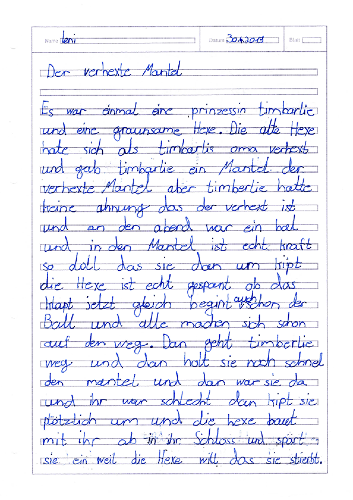 Name leni Datum 30.4.2013 Blatt
Der verhexte Mantel
Es war einmal eine prinzessin timbarlie
und eine graunsame Hexe. Die alte Hexe
hate sich als timbarlis oma verhext
und gab timbarlie ein Mantel der
verhexte Mantel aber timberlie hatte
keine ahnung das der verhext ist
und an den abend war ein bal
und in den Mantel ist echt kraft
so doll das sie dan um kipt
die Hexe ist echt gespant ob das
klapt jetzt gleich begint auch schon der
Ball und alle machen sich schon
auf den weg. Dan geht timberlie
weg und dan holt sie noch schnel
den mantel und dan war sie da
und ihr war schlecht dan kipt sie
plötzlich um und die hexe baut
mit ihr ab in ihr Schloss und spart
sie ein weil die Hexe will das sie stirbt.